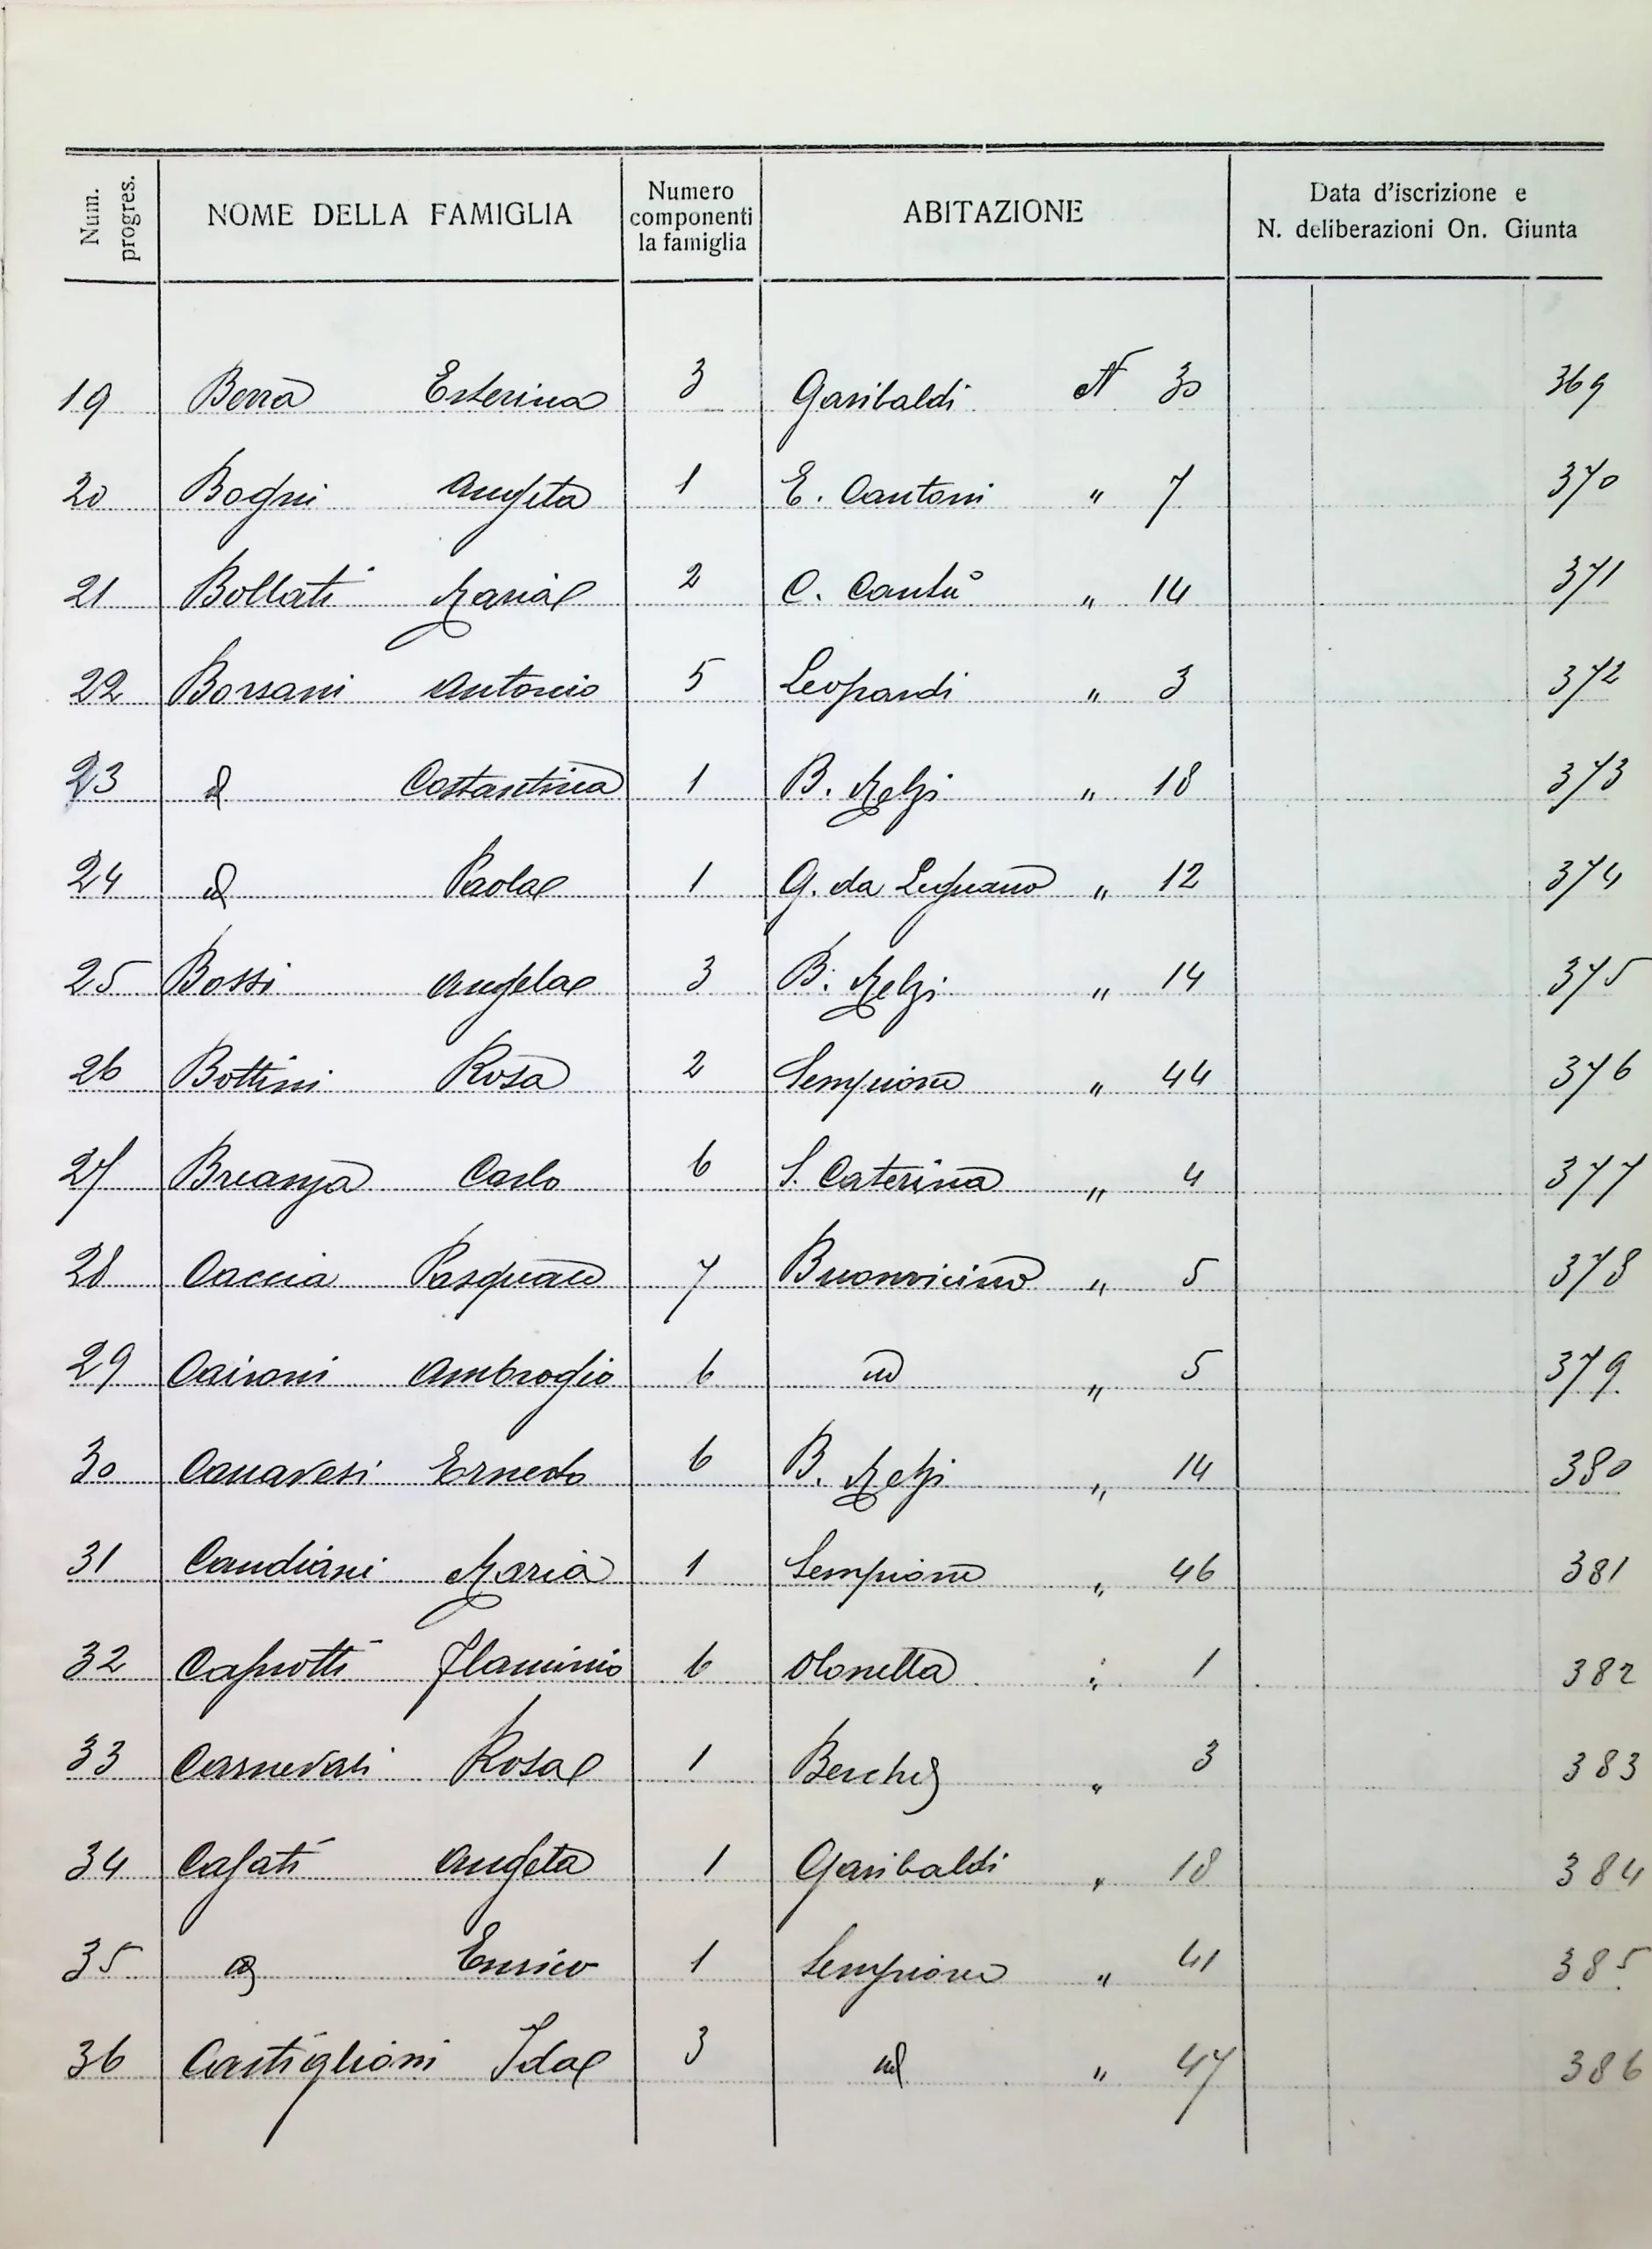 Num. progres.
NOME DELLA FAMIGLIA
Numero componenti la famiglia
ABITAZIONE
Data d'iscrizione e N. deliberazioni On. Giunta
19 Berra Esterina 3 Garibaldi N 30 369
20 Bogni Angela 1 E. Cantoni " 7 370
21 Bollati Maria 2 C. Cantù " 14 371
22 Borsani Antonio 5 Leopardi " 3 372
23 id Costantina 1 B. Melzi " 18 373
24 id Paola 1 G. da Legnano " 12 374
25 Bossi Angela 3 B. Melzi " 14 375
26 Bottini Rosa 2 Sempione " 44 376
27 Brianza Carlo 6 S. Caterina " 4 377
28 Caccia Pasquale 7 Buonvicino " 5 378
29 Caironi Ambrogio 6 id " 5 379
30 Canavesi Ernesto 6 B. Melzi " 14 380
31 Candiani Maria 1 Sempione " 46 381
32 Caprotti Flaminio 6 Olonella " 1 382
33 Carnevali Rosa 1 Berchet " 3 383
34 Casati Angela 1 Garibaldi " 18 384
35 id Enrico 1 Sempione " 41 385
36 Castiglioni Ida 3 id " 47 386